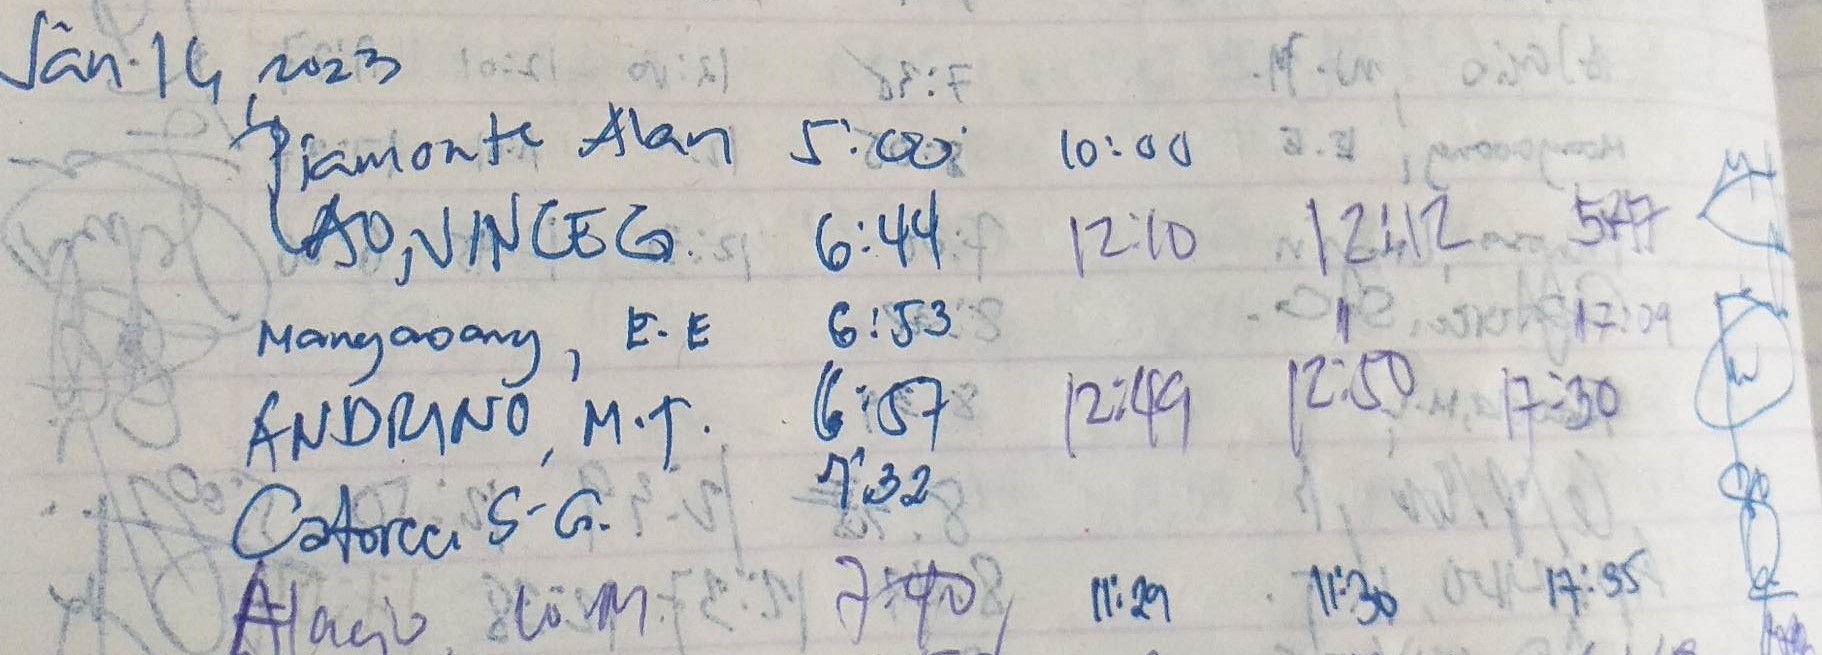 Jan. 14, 2023
Piamonte Alan 5:00 10:00
LAO, VINCE G. 6:44 12:10 12:12 5:47
Mangaoang, E.E 6:53 17:09
ANDRINO, M.T. 6:57 12:49 12:50 17:30
Catorce, S.G. 7:32
Alagio 7:40 11:29 11:30 17:35